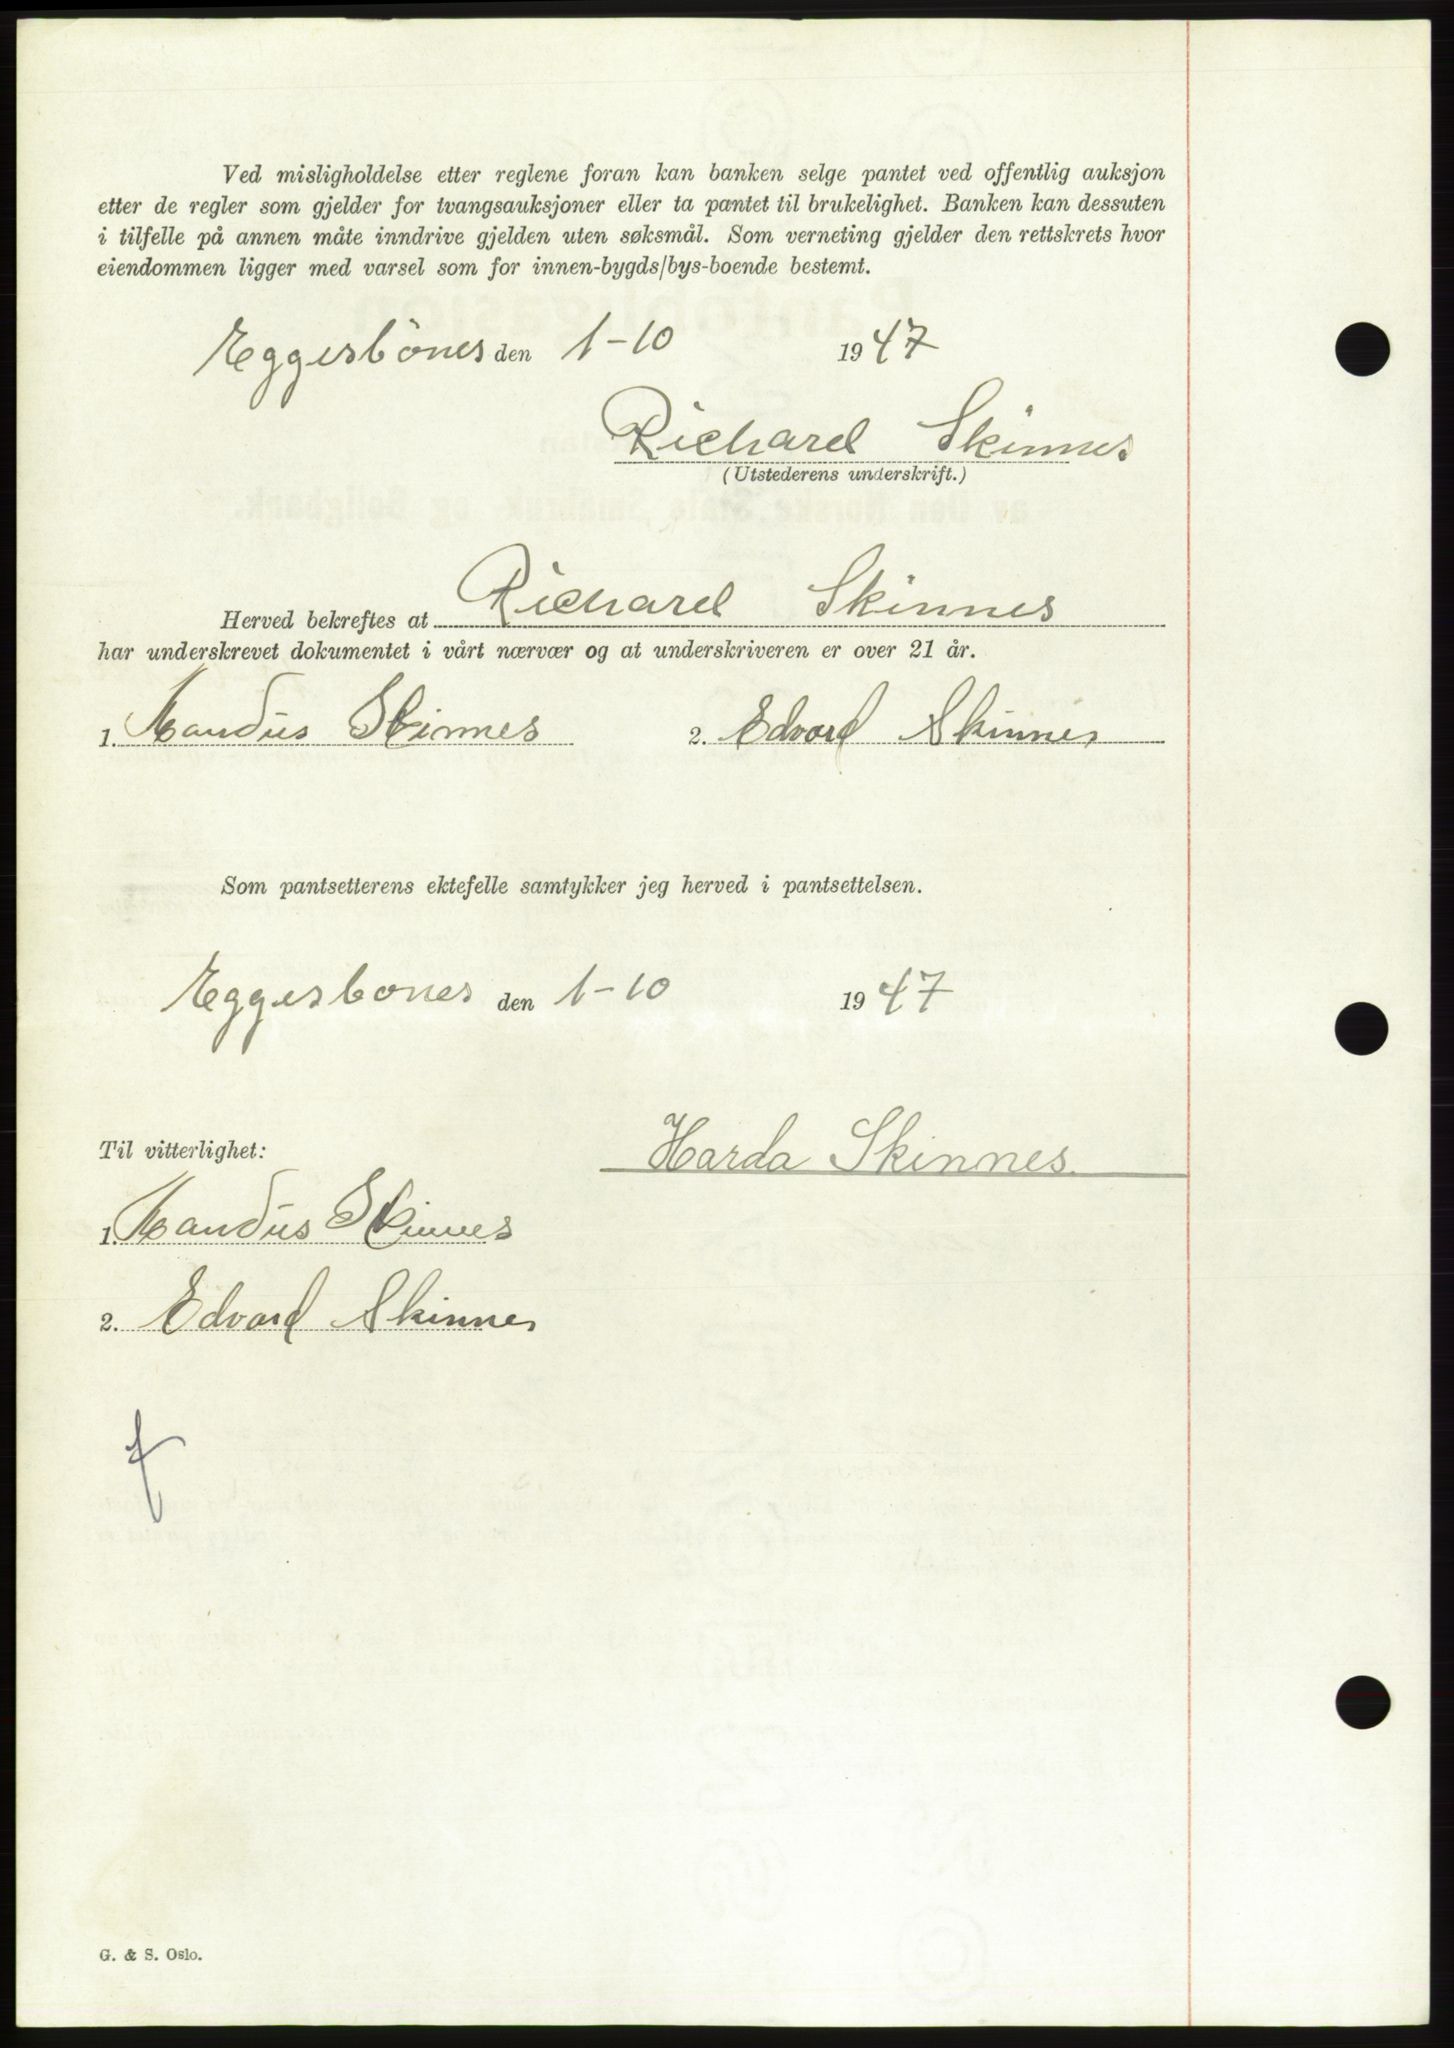 Ved misligholdelse etter reglene foran kan banken selge pantet ved offentlig auksjon
etter de regler som gjelder for tvangsauksjoner eller ta pantet til brukelighet. Banken kan dessuten
i tilfelle på annen måte inndrive gjelden uten søksmål. Som verneting gjelder den rettskrets hvor
eiendommen ligger med varsel som for innen-bygds/bys-boende bestemt.
Eggesbönes den 1-10 1947
Richard Skinnes
(Utstederens underskrift.)
Herved bekreftes at Richard Skinnes
har underskrevet dokumentet i vårt nærvær og at underskriveren er over 21 år.
1. Mandus Skinnes 2. Edvard Skinnes
Som pantsetterens ektefelle samtykker jeg herved i pantsettelsen.
Eggesbones den 1-10 1947
Til vitterlighet: Harda Skinnes
1. Mandus Skinnes
2. Edvard Skinnes
G. & S. Oslo.